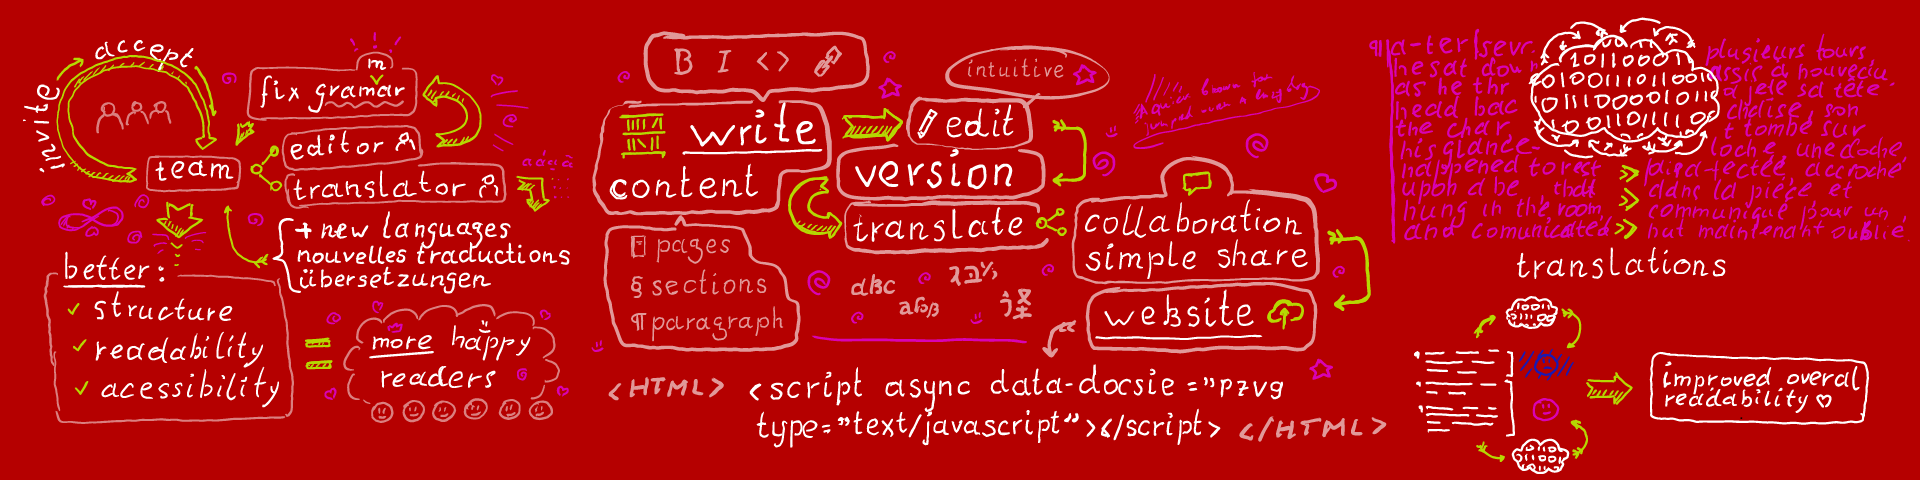 invite
accept
team
m
fix gramar
editor
translator
+ new languages
nouvelles traductions
übersetzungen
better:
structure
readability
acessibility
=
more happy
readers
B I <> 
write
content
pages
§ sections
¶ paragraph
intuitive
edit
version
translate
abc
collaboration
simple share
website
<HTML> <script async data-docsie="pzvg
type="text/javascript"></script> </HTML>
¶ a-ter/sevr.
he sat dow
as he thr
head bac
the char
his glance-
happened to rest
upon a be, that
hung in the room
and comunicated
10110001
010110110011
011100010110
01011000101
plusieurs tours
assis à nouveau
a jeté sa tête
chaise, son
t tombé sur
cloche, une cloche
accroché
dans la pièce et
communiqué pour un
but maintenant oublié.
translations
improved overal
readability